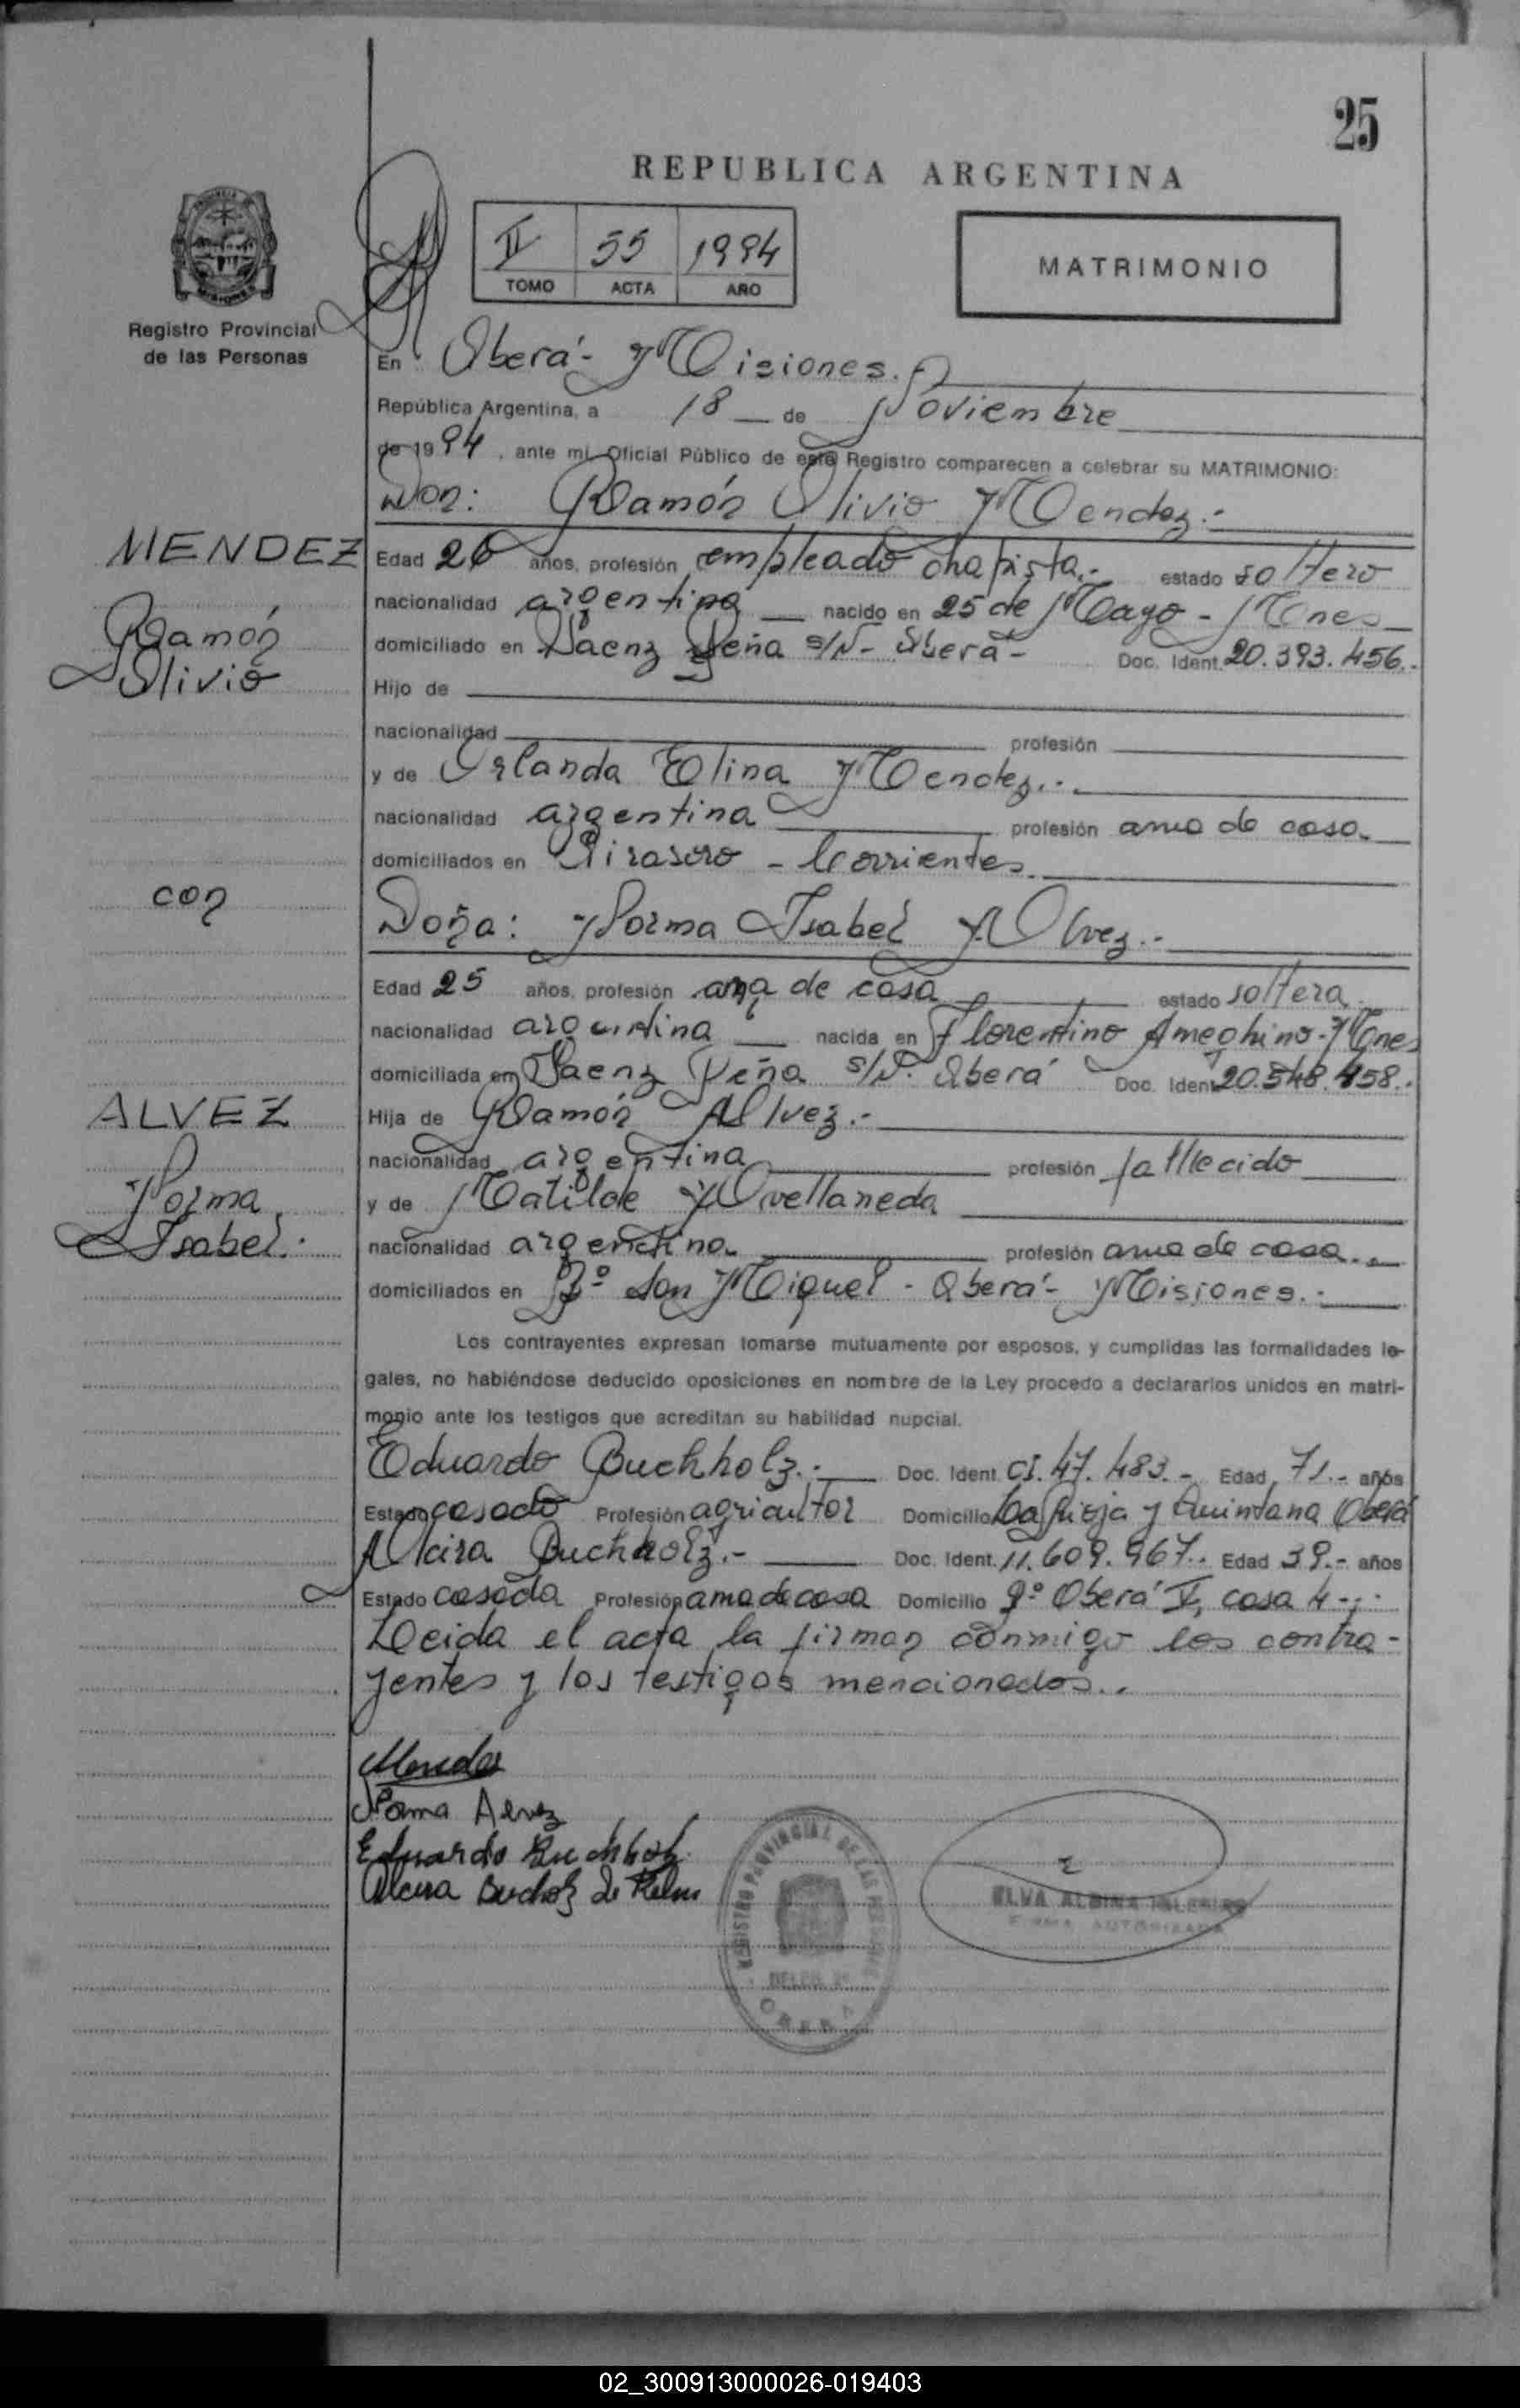 25
REPUBLICA ARGENTINA
II 55 1994
TOMO ACTA AÑO
MATRIMONIO
Registro Provincial
de las Personas
En Oberá - Misiones.
República Argentina, a 18 de Noviembre
de 1994, ante mi, Oficial Público de este Registro comparecen a celebrar su MATRIMONIO:
Don: Ramón Olivio Mendez.-
MENDEZ
Ramón
Olivio
Edad 26 años, profesión empleado chapista.- estado soltero
nacionalidad argentina nacido en 25 de Mayo - Mnes
domiciliado en Saenz Peña s/N- Oberá - Doc. Ident. 20.393.456.-
Hijo de
nacionalidad profesión
y de Orlanda Elina Mendez.-
nacionalidad argentina profesión ama de casa
domiciliados en Virasoro - Corrientes
con
Doña: Norma Isabel Alvez.-
Edad 25 años, profesión ama de casa estado soltera
nacionalidad argentina nacida en Florentino Ameghino - Mnes
domiciliada en Saenz Peña s/N. Oberá Doc. Ident. 20.548.458.-
ALVEZ
Norma
Isabel.-
Hija de Ramón Alvez.-
nacionalidad argentina profesión fallecido
y de Matilde Avellaneda
nacionalidad argentina profesión ama de casa.-
domiciliados en Bº San Miguel - Oberá - Misiones.-
Los contrayentes expresan tomarse mutuamente por esposos, y cumplidas las formalidades le-
gales, no habiéndose deducido oposiciones en nombre de la Ley procedo a declararlos unidos en matri-
monio ante los testigos que acreditan su habilidad nupcial.
Eduardo Buchholz.- Doc. Ident. CI. 47.483.- Edad 71.- años
Estado casado Profesión agricultor Domicilio La Rioja y Quintana Oberá
Alcira Buchholz.- Doc. Ident. 11.609.967.- Edad 39.- años
Estado casada Profesión ama de casa Domicilio Bº Oberá V, casa 4-.-
Leida el acta la firman conmigo los contra-
yentes y los testigos mencionados..
Mendez
Norma Alvez
Eduardo Buchholz
Alcira Bucholz de
REGISTRO PROVINCIAL DE LAS PERSONAS
OBERA
ELVA ALBINA
FIRMA AUTORIZADA
02_300913000026-019403